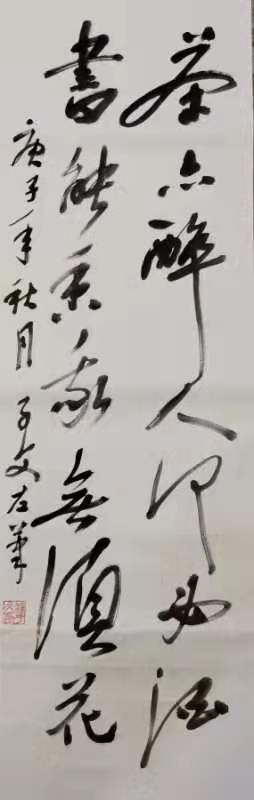 茶亦醉人何必酒
書能香我無須花
庚子年秋月 子文左筆